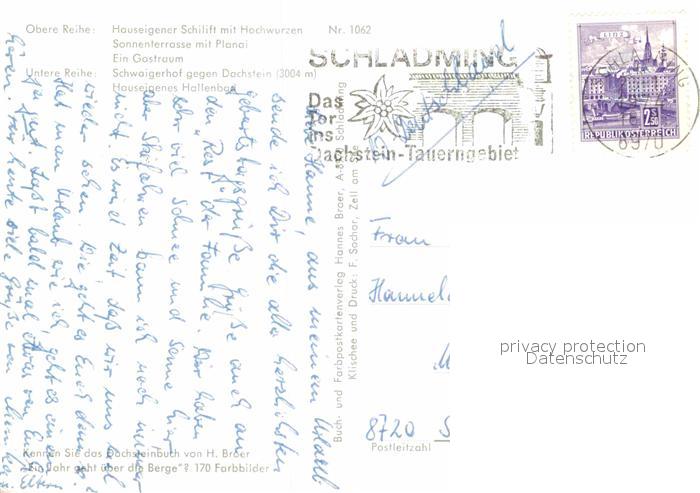 Obere Reihe: Hauseigener Schilift mit Hochwurzen
Sonnenterrasse mit Planai
Ein Gastraum
Untere Reihe: Schwaigerhof gegen Dachstein (3004 m)
Hauseigenes Hallenbad
Nr. 1062
SCHLADMING
Das
Tor
ins
Dachstein-Tauerngebiet
Deutschland
LINZ
2.50
REPUBLIK ÖSTERREICH
8970
Hanne, aus meinem
sende ich Dir die allerherzlichsten
Geburtstagsgrüße. Grüße auch an
den Rest der Familie. Wir haben
sehr viel Schnee und Sonne hier
aber Skifahren kann ich noch immer
nicht. Es wird Zeit, daß wir uns
wieder sehen. Wie geht es Euch denn
Hat man Urlaub wie ich, geht es einem
ja gut. Laßt bald mal etwas von Euch
hören. Für heute viele Grüße von
Eltern
Buch- und Farbpostkartenverlag Hannes Broer, Schladming
Klischee und Druck: F. Sochor, Zell am
Frau
8720
Postleitzahl
privacy protection
Datenschutz
Kennen Sie das Dachsteinbuch von H. Broer
"Ein Jahr geht über die Berge"? 170 Farbbilder